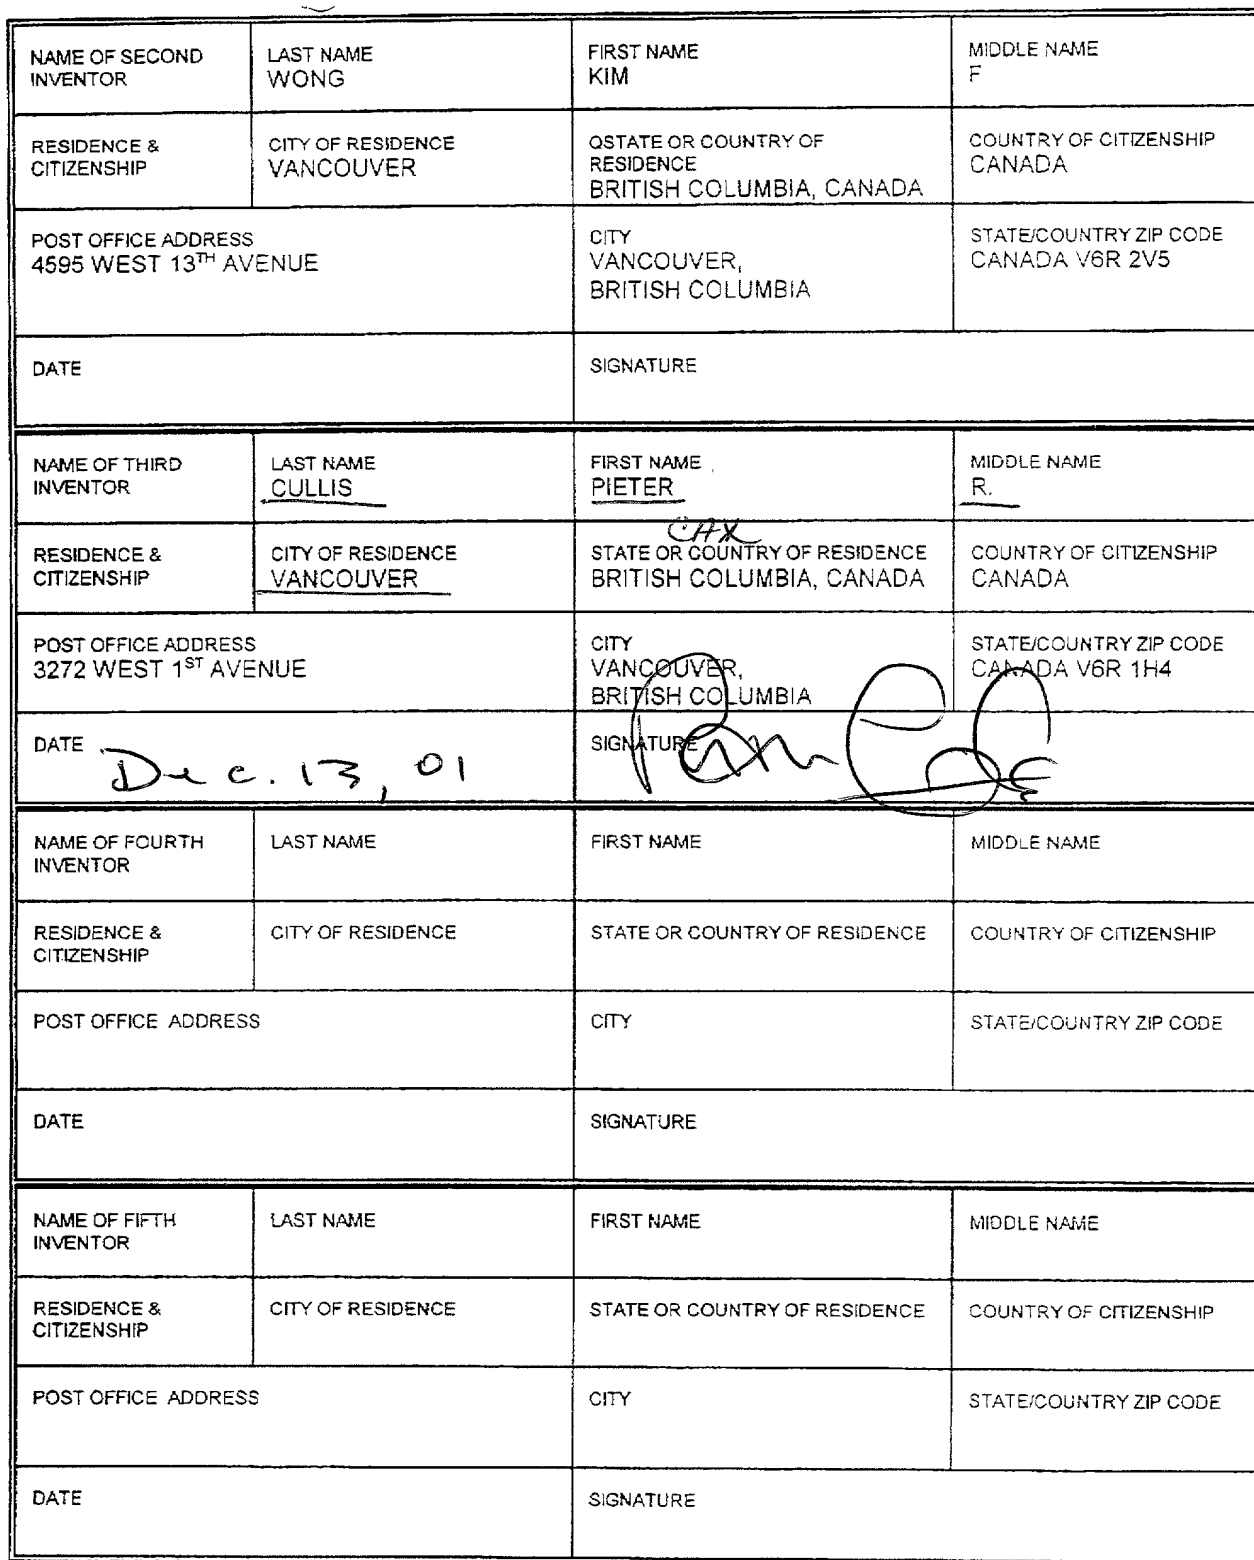 NAME OF SECOND INVENTOR
LAST NAME
WONG
FIRST NAME
KIM
MIDDLE NAME
F
RESIDENCE & CITIZENSHIP
CITY OF RESIDENCE
VANCOUVER
QSTATE OR COUNTRY OF RESIDENCE
BRITISH COLUMBIA, CANADA
COUNTRY OF CITIZENSHIP
CANADA
POST OFFICE ADDRESS
4595 WEST 13TH AVENUE
CITY
VANCOUVER,
BRITISH COLUMBIA
STATE/COUNTRY ZIP CODE
CANADA V6R 2V5
DATE
SIGNATURE
NAME OF THIRD INVENTOR
LAST NAME
CULLIS
FIRST NAME
PIETER
MIDDLE NAME
R.
RESIDENCE & CITIZENSHIP
CITY OF RESIDENCE
VANCOUVER
CAX
STATE OR COUNTRY OF RESIDENCE
BRITISH COLUMBIA, CANADA
COUNTRY OF CITIZENSHIP
CANADA
POST OFFICE ADDRESS
3272 WEST 1ST AVENUE
CITY
VANCOUVER,
BRITISH COLUMBIA
STATE/COUNTRY ZIP CODE
CANADA V6R 1H4
DATE
Dec. 13, 01
SIGNATURE
NAME OF FOURTH INVENTOR
LAST NAME
FIRST NAME
MIDDLE NAME
RESIDENCE & CITIZENSHIP
CITY OF RESIDENCE
STATE OR COUNTRY OF RESIDENCE
COUNTRY OF CITIZENSHIP
POST OFFICE ADDRESS
CITY
STATE/COUNTRY ZIP CODE
DATE
SIGNATURE
NAME OF FIFTH INVENTOR
LAST NAME
FIRST NAME
MIDDLE NAME
RESIDENCE & CITIZENSHIP
CITY OF RESIDENCE
STATE OR COUNTRY OF RESIDENCE
COUNTRY OF CITIZENSHIP
POST OFFICE ADDRESS
CITY
STATE/COUNTRY ZIP CODE
DATE
SIGNATURE